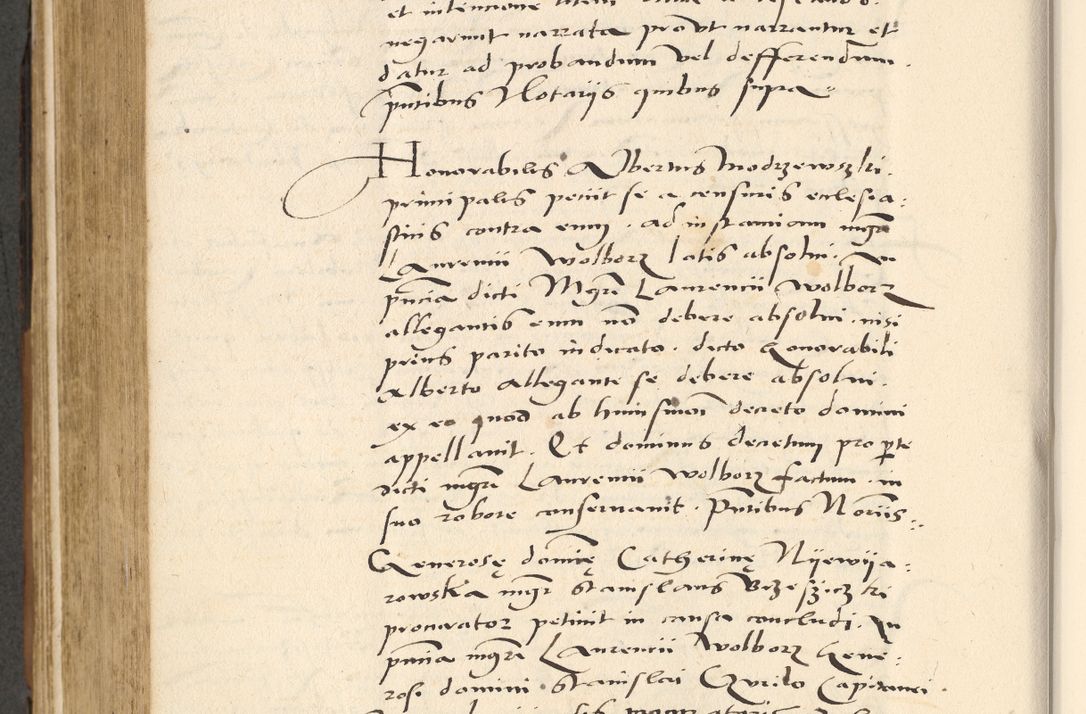 et intencione litem
negarunt narrata prout narrantur et
datur ad probandum vel defferendum.
pñtibus Notarijs quibus supra
Honorabilis Albertus Modrzewszki.
principalis petiit se a censuris ecclesia:
sticis contra eum. ad instanciam mgrĩ
Laurencii Wolborz latis absolvi. In
pñcia dicti Mgrĩ Laurencii Wolborz
allegantis eum nõ debere absolvi. nisi
prius parito indicato. dicto honorabili
Alberto allegante se debere absolvi.
ex eo quod ab huiusmoi decreto domini
appellavit. Et dominus decretum pro pte
dicti mgrĩ Laurencii Wolborz factum. in
suo robore conservavit. Pñtibus Noriis.
Generosę domię Catherinę Nijewija:
rowska mgr Stanislaus Brzeszicz ki
procurator petiuit in causa concludi. In
pñcia mgrĩ Laurencii Wolborz Gene:
rosi domini Stanislai Capitanei.